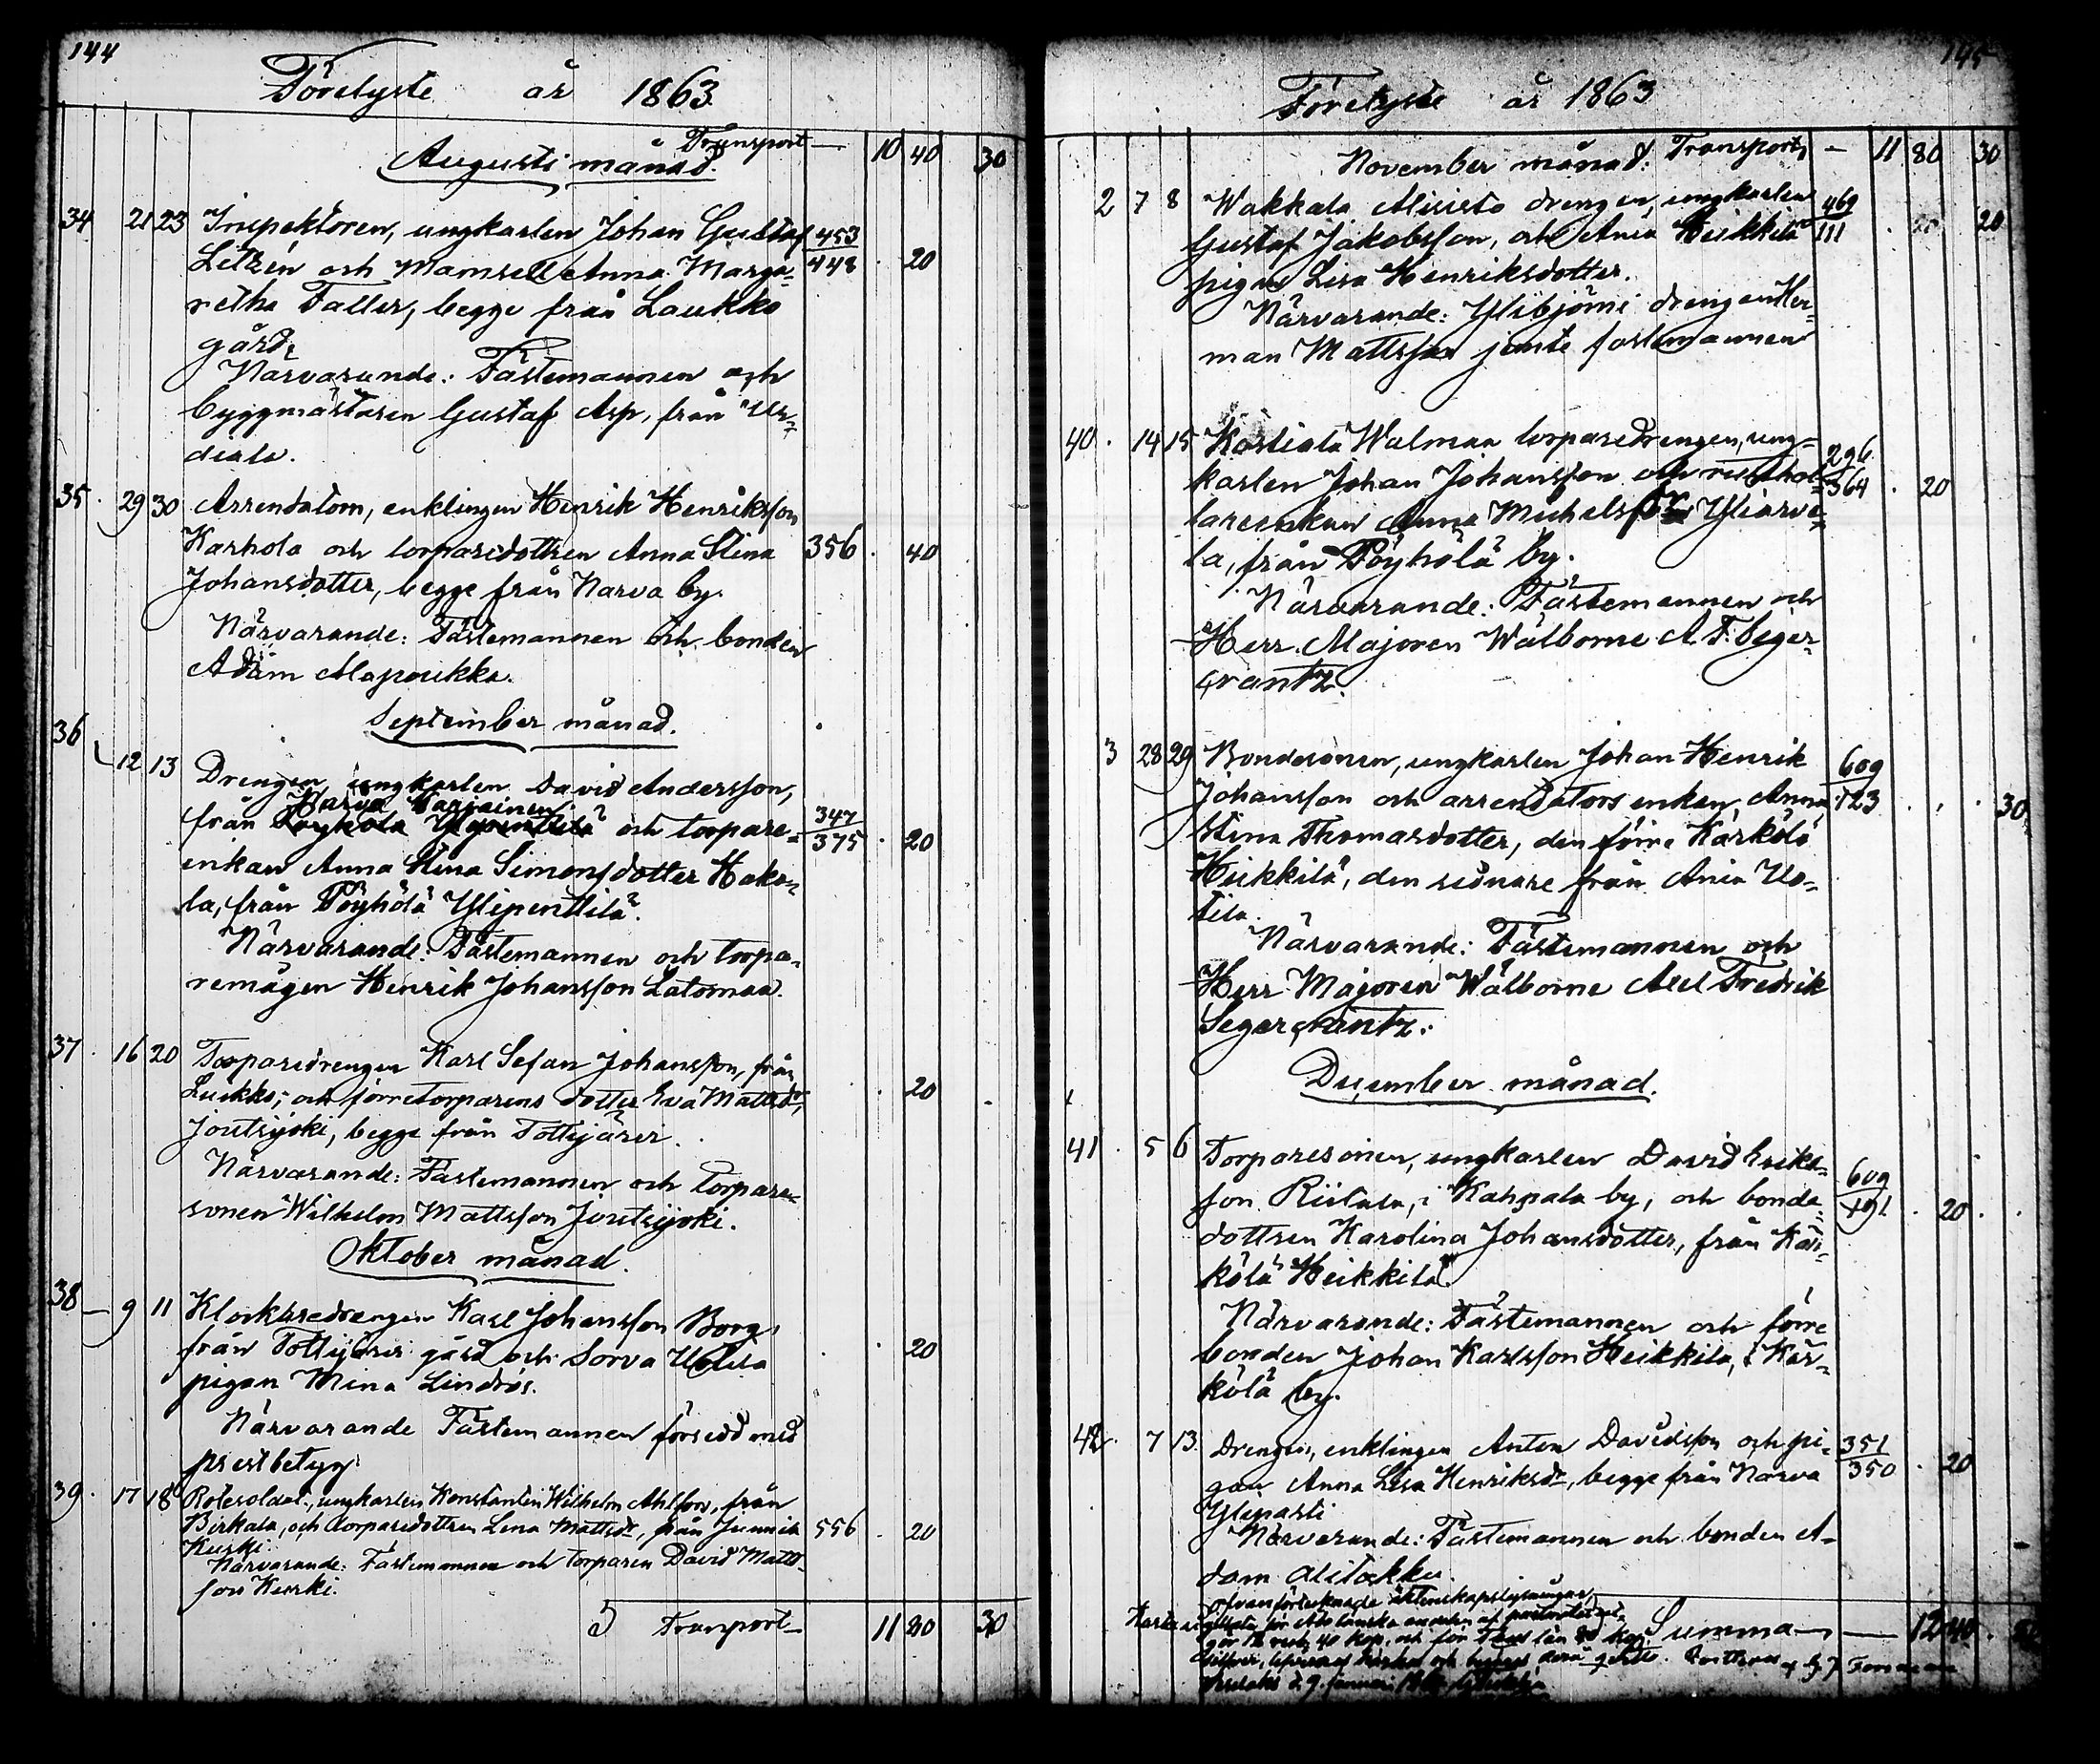 144
Förelyste år 1863
Transport — 10 40 30
Augusti månad.
34 21 23 Inspektoren, ungkarlen Johan Gustaf 453
Litzén och Mamsell Anna Marga- 448 . 20
retha Faller, begge från Laukko
gård.
Närvarande: Fästemannen och
byggmästaren Gustaf Asp, från Ur-
diala.
35. 29 30 Arrendatorn, enklingen Henrik Henriksson
Karhola och torparedottren Anna Stina 356 . 40
Johansdotter, begge från Narva by.
Närvarande: Fästemannen och bonden
Adam
September månad.
36 12 13 Drengen, ungkarlen David Andersson,
Narva
från Ylipenttilä och torpare- 347
enkan Anna Stina Simonsdotter Hako- 375 . 20
la, från Pöyhölä Ylipenttilä.
Närvarande: Fästemannen och torpa-
remågen Henrik Johansson Latomaa.
37. 16 20 Torparedrengen Karl Stefan Johansson, från
Laukko, och förre torparens dotter Eva Mattsdr . 20
Joutsijoki, begge från Tottijärvi.
Närvarande: Fästemannen och torpare-
sonen Wilhelm Mattsson Joutsijoki.
Oktober månad.
38 — 9 11 Klockaredrengen Karl Johansson Borg,
från Tottijärvi gård och Sorva Uotila . 20
pigan Mina Lindros.
Närvarande Fästemannen försedd med
prestbetyg.
39. 17 18 Rotesoldat, ungkarlen Konstantin Wilhelm Ahlfors, från
Birkala, och torparedottren Lena Mattsdr, från Junnila 556 . 20
Kurki.
Närvarande: Fästemannen och torparen David Matts-
son Kurki.
5 Transport — 11 80 30
145
Förelyste år 1863
Transport, — 11 80 30
November månad.
2 7 8 Wakkala drengen, ungkarlen 469
Gustaf Jakobsson, och Ania Heikkilä 111 . 20
pigan Lisa Henriksdotter.
Närvarande: Ylibjörni drengen Her-
man Mattsson jemte fästemannen
40. 14 15 Kostiala Walmaa torparedrengen, ung- 296
karlen Johan Johansson och rusthål- 364 . 20
lareenkan Anna Michelsdr Yliarve-
la, från Pöyhölä by.
Närvarande: Fästemannen och
Herr Majoren Wälborne A F. Seger-
crantz.
3 28 29 Bondesonen, ungkarlen Johan Henrik 609
Johansson och arrendators enkan Anna 123 . . 30
Stina Thomasdotter, den förre Kärkölä
Heikkilä, den sednare från Ania Uo-
tila.
Närvarande: Fästemannen och
Herr Majoren Wälborne Axel Fredrik
Segercrantz.
December månad.
41. 5 6 Torparesonen, ungkarlen David Eriks- 609
son Riitala, i Kahpala by, och bonde- 191 . 20 .
dottren Karolina Johansdotter, från Kär-
kölä Heikkilä.
Närvarande: Fästemannen och förre
bonden Johan Karlsson Heikkilä, i Kär-
kölä by.
42. 7 13 Drengen, enklingen Anton Davidsson och pi- 351
gan Anna Lisa Henriksdr, begge från Narva 350 . 20
Närvarande: Fästemannen och bonden A-
dam Alitakku.
ofvanförtecknade äktenskapslysningar,
Summa — 12 40